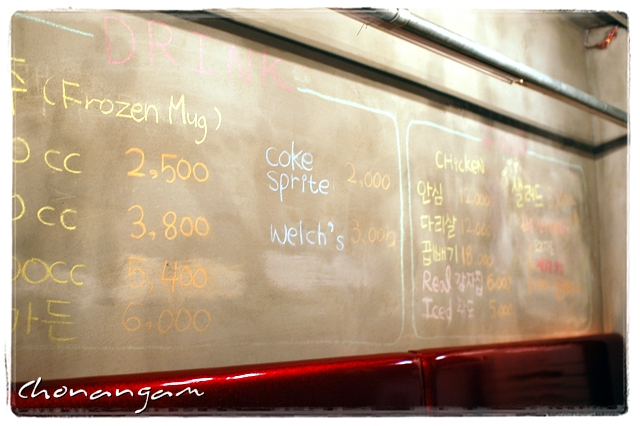 DRINK
(Frozen Mug)
0 cc 2,500
0 cc 3,800
00cc 5,400
가든 6,000
coke
sprite 2,000
welch's 3,000
CHICKEN
안심 12,000
다리살 12,000
곱빼기 18,000
Real 감자칩 6,000
Iced 5,000
샐러드
Chonangam